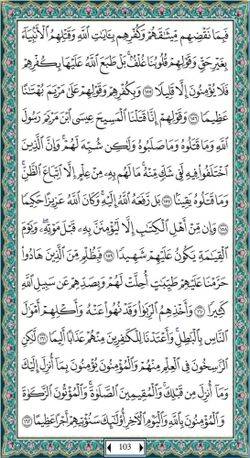 فَبِمَا نَقْضِهِم مِّيثَٰقَهُمْ وَكُفْرِهِم بِـَٔايَٰتِ ٱللَّهِ وَقَتْلِهِمُ ٱلْأَنۢبِيَآءَ
بِغَيْرِ حَقٍّ وَقَوْلِهِمْ قُلُوبُنَا غُلْفٌۢ ۚ بَلْ طَبَعَ ٱللَّهُ عَلَيْهَا بِكُفْرِهِمْ
فَلَا يُؤْمِنُونَ إِلَّا قَلِيلًا ١٥٥ وَبِكُفْرِهِمْ وَقَوْلِهِمْ عَلَىٰ مَرْيَمَ بُهْتَٰنًا
عَظِيمًا ١٥٦ وَقَوْلِهِمْ إِنَّا قَتَلْنَا ٱلْمَسِيحَ عِيسَى ٱبْنَ مَرْيَمَ رَسُولَ
ٱللَّهِ وَمَا قَتَلُوهُ وَمَا صَلَبُوهُ وَلَٰكِن شُبِّهَ لَهُمْ ۚ وَإِنَّ ٱلَّذِينَ
ٱخْتَلَفُوا۟ فِيهِ لَفِى شَكٍّ مِّنْهُ ۚ مَا لَهُم بِهِۦ مِنْ عِلْمٍ إِلَّا ٱتِّبَاعَ ٱلظَّنِّ ۚ
وَمَا قَتَلُوهُ يَقِينًۢا ١٥٧ بَل رَّفَعَهُ ٱللَّهُ إِلَيْهِ ۚ وَكَانَ ٱللَّهُ عَزِيزًا حَكِيمًا
١٥٨ وَإِن مِّنْ أَهْلِ ٱلْكِتَٰبِ إِلَّا لَيُؤْمِنَنَّ بِهِۦ قَبْلَ مَوْتِهِۦ ۖ وَيَوْمَ
ٱلْقِيَٰمَةِ يَكُونُ عَلَيْهِمْ شَهِيدًا ١٥٩ فَبِظُلْمٍ مِّنَ ٱلَّذِينَ هَادُوا۟
حَرَّمْنَا عَلَيْهِمْ طَيِّبَٰتٍ أُحِلَّتْ لَهُمْ وَبِصَدِّهِمْ عَن سَبِيلِ ٱللَّهِ
كَثِيرًا ١٦٠ وَأَخْذِهِمُ ٱلرِّبَوٰا۟ وَقَدْ نُهُوا۟ عَنْهُ وَأَكْلِهِمْ أَمْوَٰلَ
ٱلنَّاسِ بِٱلْبَٰطِلِ ۚ وَأَعْتَدْنَا لِلْكَٰفِرِينَ مِنْهُمْ عَذَابًا أَلِيمًا ١٦١ لَّٰكِنِ
ٱلرَّٰسِخُونَ فِى ٱلْعِلْمِ مِنْهُمْ وَٱلْمُؤْمِنُونَ يُؤْمِنُونَ بِمَآ أُنزِلَ إِلَيْكَ
وَمَآ أُنزِلَ مِن قَبْلِكَ ۚ وَٱلْمُقِيمِينَ ٱلصَّلَوٰةَ ۚ وَٱلْمُؤْتُونَ ٱلزَّكَوٰةَ
وَٱلْمُؤْمِنُونَ بِٱللَّهِ وَٱلْيَوْمِ ٱلْءَاخِرِ أُو۟لَٰٓئِكَ سَنُؤْتِيهِمْ أَجْرًا عَظِيمًا ١٦٢
103